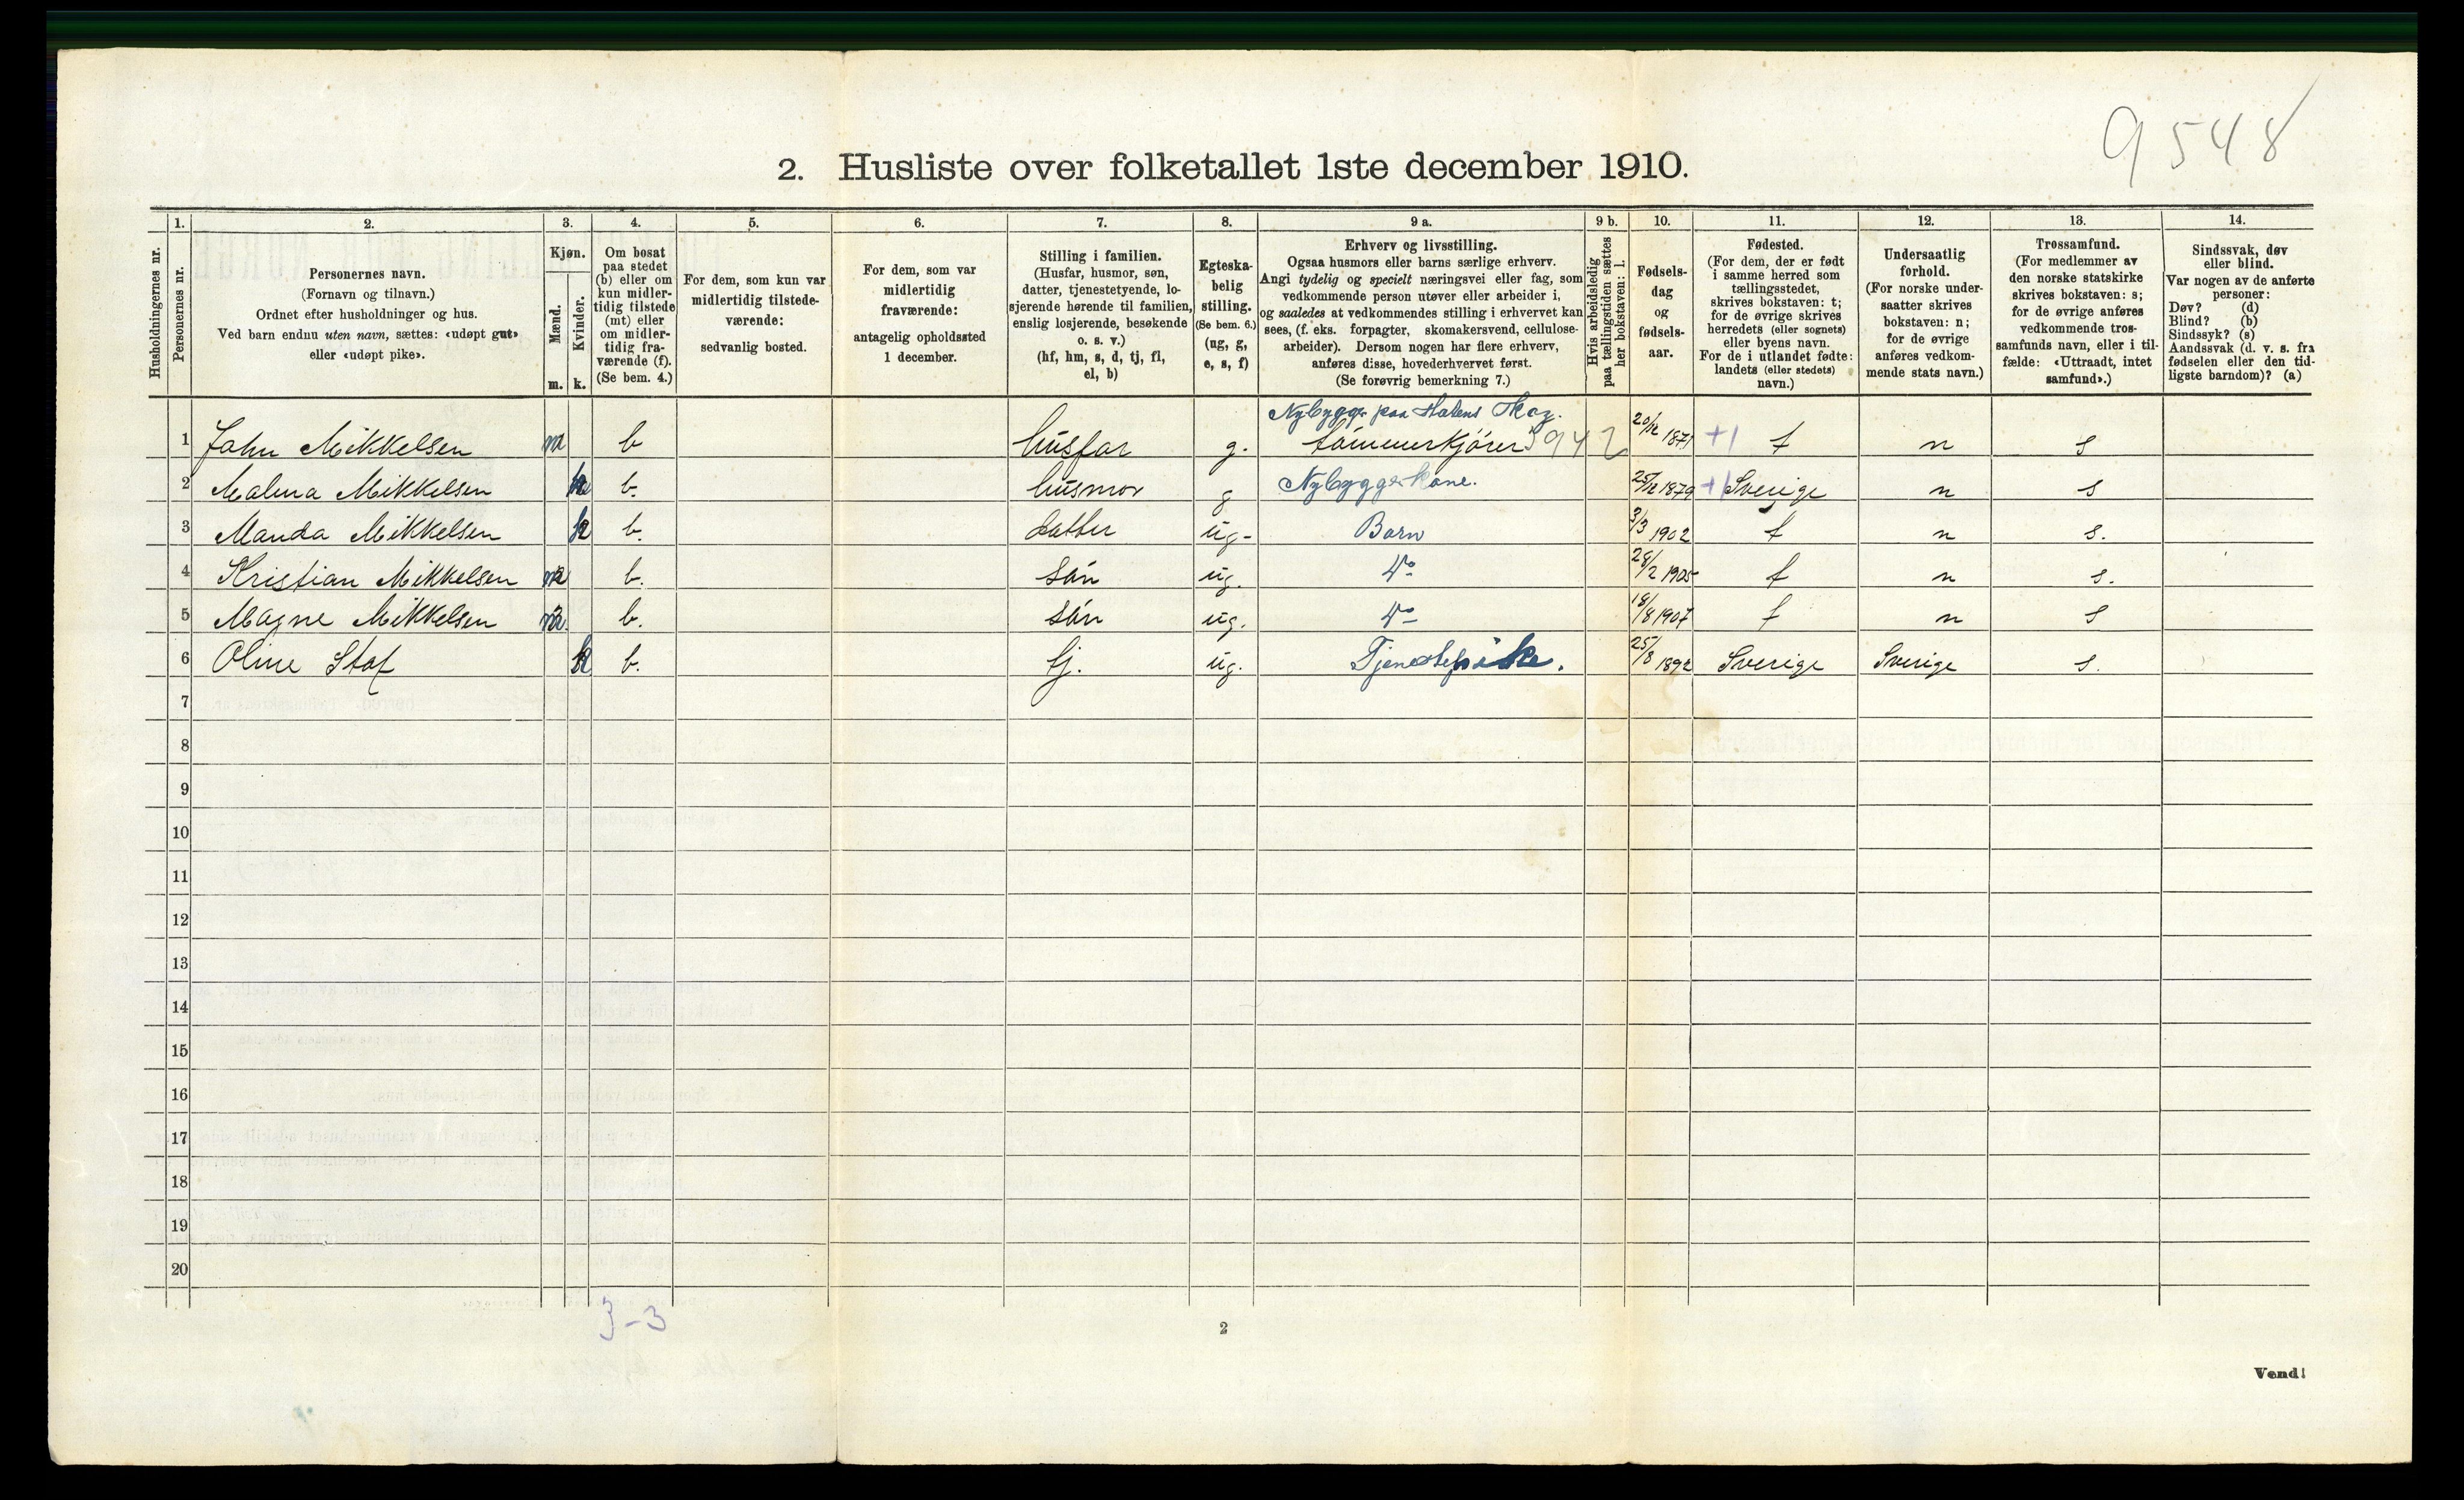 9548
2. Husliste over folketallet 1ste december 1910.
Husholdningernes nr.
1.
Personernes nr.
2.
Personernes navn.
(Fornavn og tilnavn.)
Ordnet efter husholdninger og hus.
Ved barn endnu uten navn, sættes: «udøpt gut»
eller «udøpt pike».
3.
Kjøn.
Mænd.
m.
Kvinder.
k.
4.
Om bosat
paa stedet
(b) eller om
kun midler-
tidig tilstede
(mt) eller
om midler-
tidig fra-
værende (f).
(Se bem. 4.)
5.
For dem, som kun var
midlertidig tilstede-
værende:
sedvanlig bosted.
6.
For dem, som var
midlertidig
fraværende:
antagelig opholdssted
1 december.
7.
Stilling i familien.
(Husfar, husmor, søn,
datter, tjenestetyende, lo-
sjerende hørende til familien,
enslig losjerende, besøkende
o. s. v.)
(hf, hm, s, d, tj, fl,
el, b)
8.
Egteska-
belig
stilling.
(Se bem. 6.)
(ug, g,
e, s, f)
9 a.
Erhverv og livsstilling.
Ogsaa husmors eller barns særlige erhverv.
Angi tydelig og specielt næringsvei eller fag, som
vedkommende person utøver eller arbeider i,
og saaledes at vedkommendes stilling i erhvervet kan
sees, (f. eks. forpagter, skomakersvend, cellulose-
arbeider). Dersom nogen har flere erhverv,
anføres disse, hovederhvervet først.
(Se forøvrig bemerkning 7.)
9 b.
Hvis arbeidsledig
paa tællingstiden sættes
her bokstaven: l.
10.
Fødsels-
dag
og
fødsels-
aar.
11.
Fødested.
(For dem, der er født
i samme herred som
tællingsstedet,
skrives bokstaven: t;
for de øvrige skrives
herredets (eller sognets)
eller byens navn.
For de i utlandet fødte:
landets (eller stedets)
navn.)
12.
Undersaatlig
forhold.
(For norske under-
saatter skrives
bokstaven: n;
for de øvrige
anføres vedkom-
mende stats navn.)
13.
Trossamfund.
(For medlemmer av
den norske statskirke
skrives bokstaven: s;
for de øvrige anføres
vedkommende tros-
samfunds navn, eller i til-
fælde: «Uttraadt, intet
samfund».)
14.
Sindssvak, døv
eller blind.
Var nogen av de anførte
personer:
Døv? (d)
Blind? (b)
Sindssyk? (s)
Aandssvak (d. v. s. fra
fødselen eller den tid-
ligste barndom)? (a)
Nybygger paa Statens Skog.
1 John Mikkelsen m b husfar g. tømmerkjører 5942 20/12 1871 +1 t n s
2 Malena Mikkelsen k b. husmor g Nybyggerkone. 25/12 1879 +1 Sverige n s
3 Manda Mikkelsen k b. datter ug- Barn 3/3 1902 t n s.
4 Kristian Mikkelsen m b. søn ug. Do 28/2 1905 t n s.
5 Magne Mikkelsen m. b. søn ug. Do 18/8 1907 t n s
6 Oline Staf k b. tj. ug. Tjenestepike. 25/8 1892 Sverige Sverige s.
7
8
9
10
11
12
13
14
15
16
17
18
19
20
3-3
2
Vend!